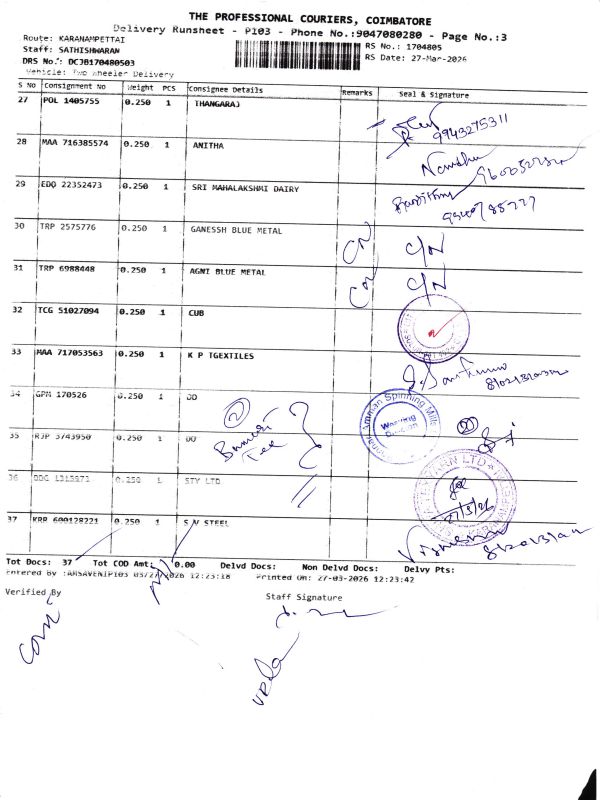 THE PROFESSIONAL COURIERS, COIMBATORE
Delivery Runsheet - P103 - Phone No.:9047080280 - Page No.:3
Route: KARANAMPETTAI
RS No.: 1704805
Staff: SATHISHWARAN
RS Date: 27-Mar-2026
DRS No.: DCJB170480503
Vehicle: Two Wheeler Delivery
S No Consignment No Weight PCS Consignee Details Remarks Seal & Signature
27 POL 1405755 0.250 1 THANGARAJ
9943275311
28 MAA 716385574 0.250 1 ANITHA
Nandhu
29 EDO 22352473 0.250 1 SRI MAHALAKSHMI DAIRY
30 TRP 2575776 0.250 1 GANESSH BLUE METAL C/N C/N
31 TRP 6988448 0.250 1 AGNI BLUE METAL C/N C/N
32 TCG 51027094 0.250 1 CUB
33 MAA 717053563 0.250 1 K P TGEXTILES
34 GPM 170526 0.250 1 DO
Amman Spinning Mills
Weaving Division
2
35 RJP 3743950 0.250 1 DO
2
36 0.250 1 STY LTD
YARN LTD
27/3/26
37 KRR 600128221 0.250 1 S V STEEL
Tot Docs: 37 Tot COD Amt: 0.00 Delvd Docs: Non Delvd Docs: Delvy Pts:
Entered By :ARSAVENIP103 03/27/2026 12:23:18 Printed On: 27-03-2026 12:23:42
Verified By
Staff Signature